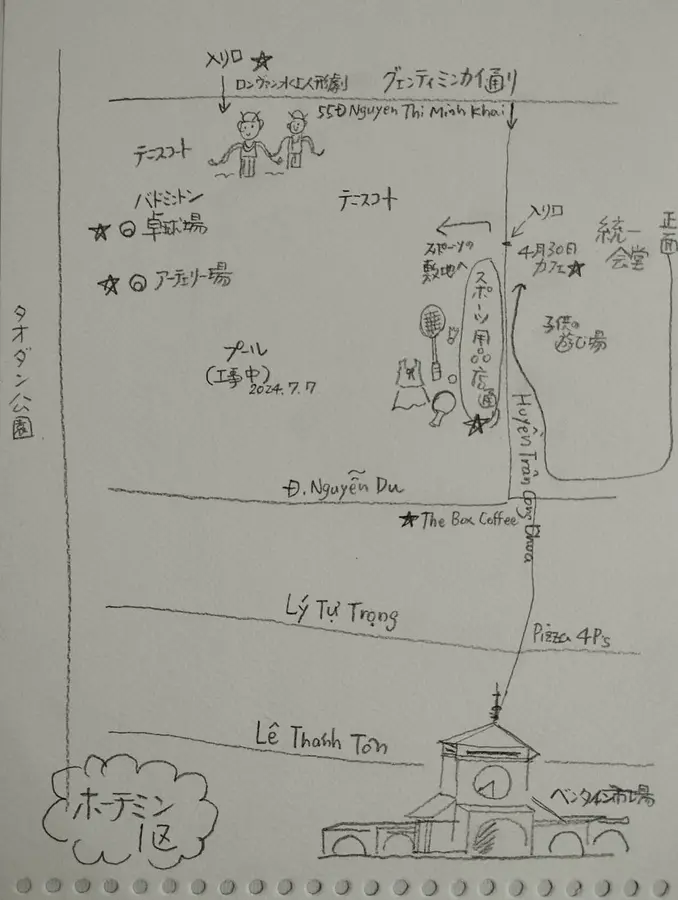 入り口 ☆
ロンヴァン水上人形劇
グェンティミンカイ通り
55Đ Nguyen Thi Minh Khai
テニスコート
テニスコート
バドミントン
☆◎卓球場
☆◎アーチェリー場
プール
(工事中)
2024.7.7
スポーツの
敷地へ
スポーツ用品店通
☆
入り口
4月30日
カフェ☆
統一
会堂
正面
子供の
遊び場
タオダン公園
Huyền Trân Công Chúa
Đ. Nguyễn Du
☆The Box Coffee
Lý Tự Trọng
Pizza 4P's
Lê Thanh Ton
ホーチミン
1区
ベンタイン市場